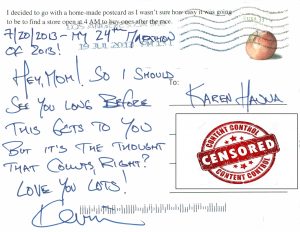 I decided to go with a home-made postcard as I wasn't sure how easy it was going
to be to find a store open at 4 AM to buy ones after the race.
7/20/2013 - MY 24TH MARATHON
OF 2013!
19 JUL 201
HEY, MOM! SO I SHOULD
SEE YOU LONG BEFORE
THIS GETS TO YOU
BUT IT'S THE THOUGHT
THAT COUNTS, RIGHT?
LOVE YOU LOTS!
Kevin
To:
KAREN HANNA
CONTENT CONTROL
CENSORED
CONTENT CONTROL